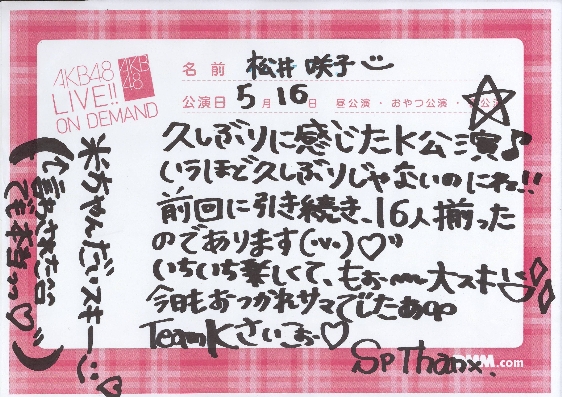 AKB48
LIVE!!
ON DEMAND
AKB
48
名前 松井咲子
公演日 5月16日 昼公演・おやつ公演・
久しぶりに感じたK公演♪
いうほど久しぶりじゃないのにね!!
前回に引き続き、16人揃った
のであります(´▽`)♡"
いちいち楽しくて、もぉ〜〜大スキ
今日もおつかれサマでしたぁ
TeamKさいこぉ〜♡
Sp Thanx.
.com
米ちゃんだいスキー♡
(言わされた
でも本当…♡)